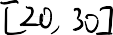 [20, 30]